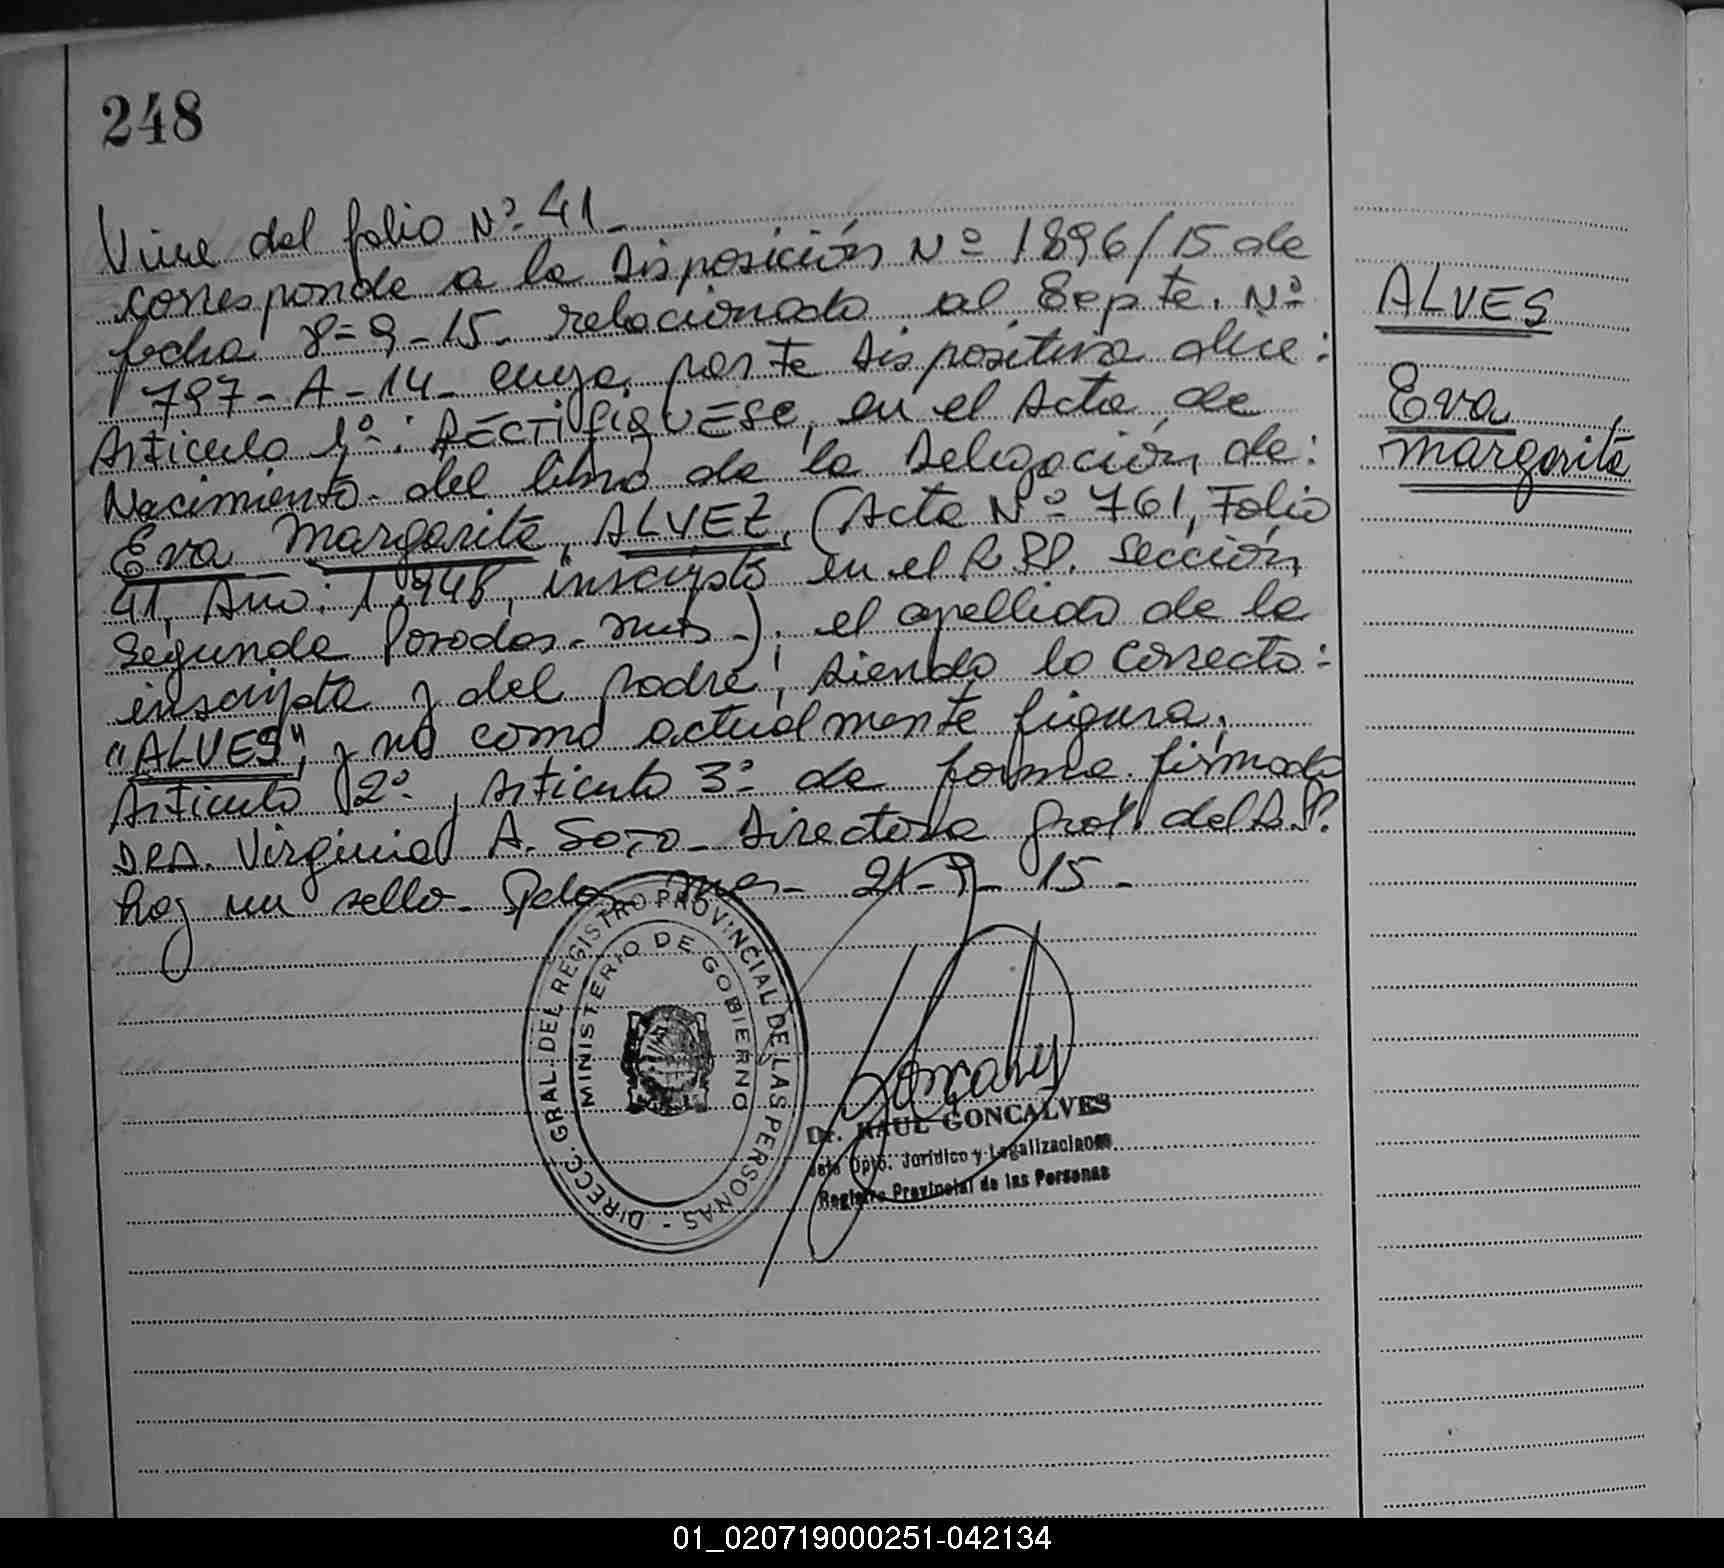 248
Viene del folio Nº 41-
corresponde a la Disposición Nº 1896/15 de
fecha 8=9-15- relacionado al Expte. Nº
1797-A-14- cuya parte Dispositiva dice:
Articulo 1º: RECTIFIQUESE, en el Acta de
Nacimiento del libro de la Delegación de:
Eva Margarita, ALVEZ, (Acta Nº 761, Folio
41, Año: 1.948, inscripta en el R.P.P. Sección
Segunda Posadas-Mnes-), el apellido de la
inscripta y del padre, siendo lo correcto:
"ALVES", y no como actualmente figura,
Articulo 2º, Articulo 3º de forma. firmado
DRA. Virginia A. Soto- Directora Gral. del R.P.
hay un sello- Pdas- Mnes- 21-9-15-
ALVES
Eva
Margarita
DIRECC. GRAL. DEL REGISTRO PROVINCIAL DE LAS PERSONAS -
MINISTERIO DE GOBIERNO
Dr. RAUL GONCALVES
Jefe Dpto. Jurídico y Legalizaciones
Registro Provincial de las Personas
01_020719000251-042134